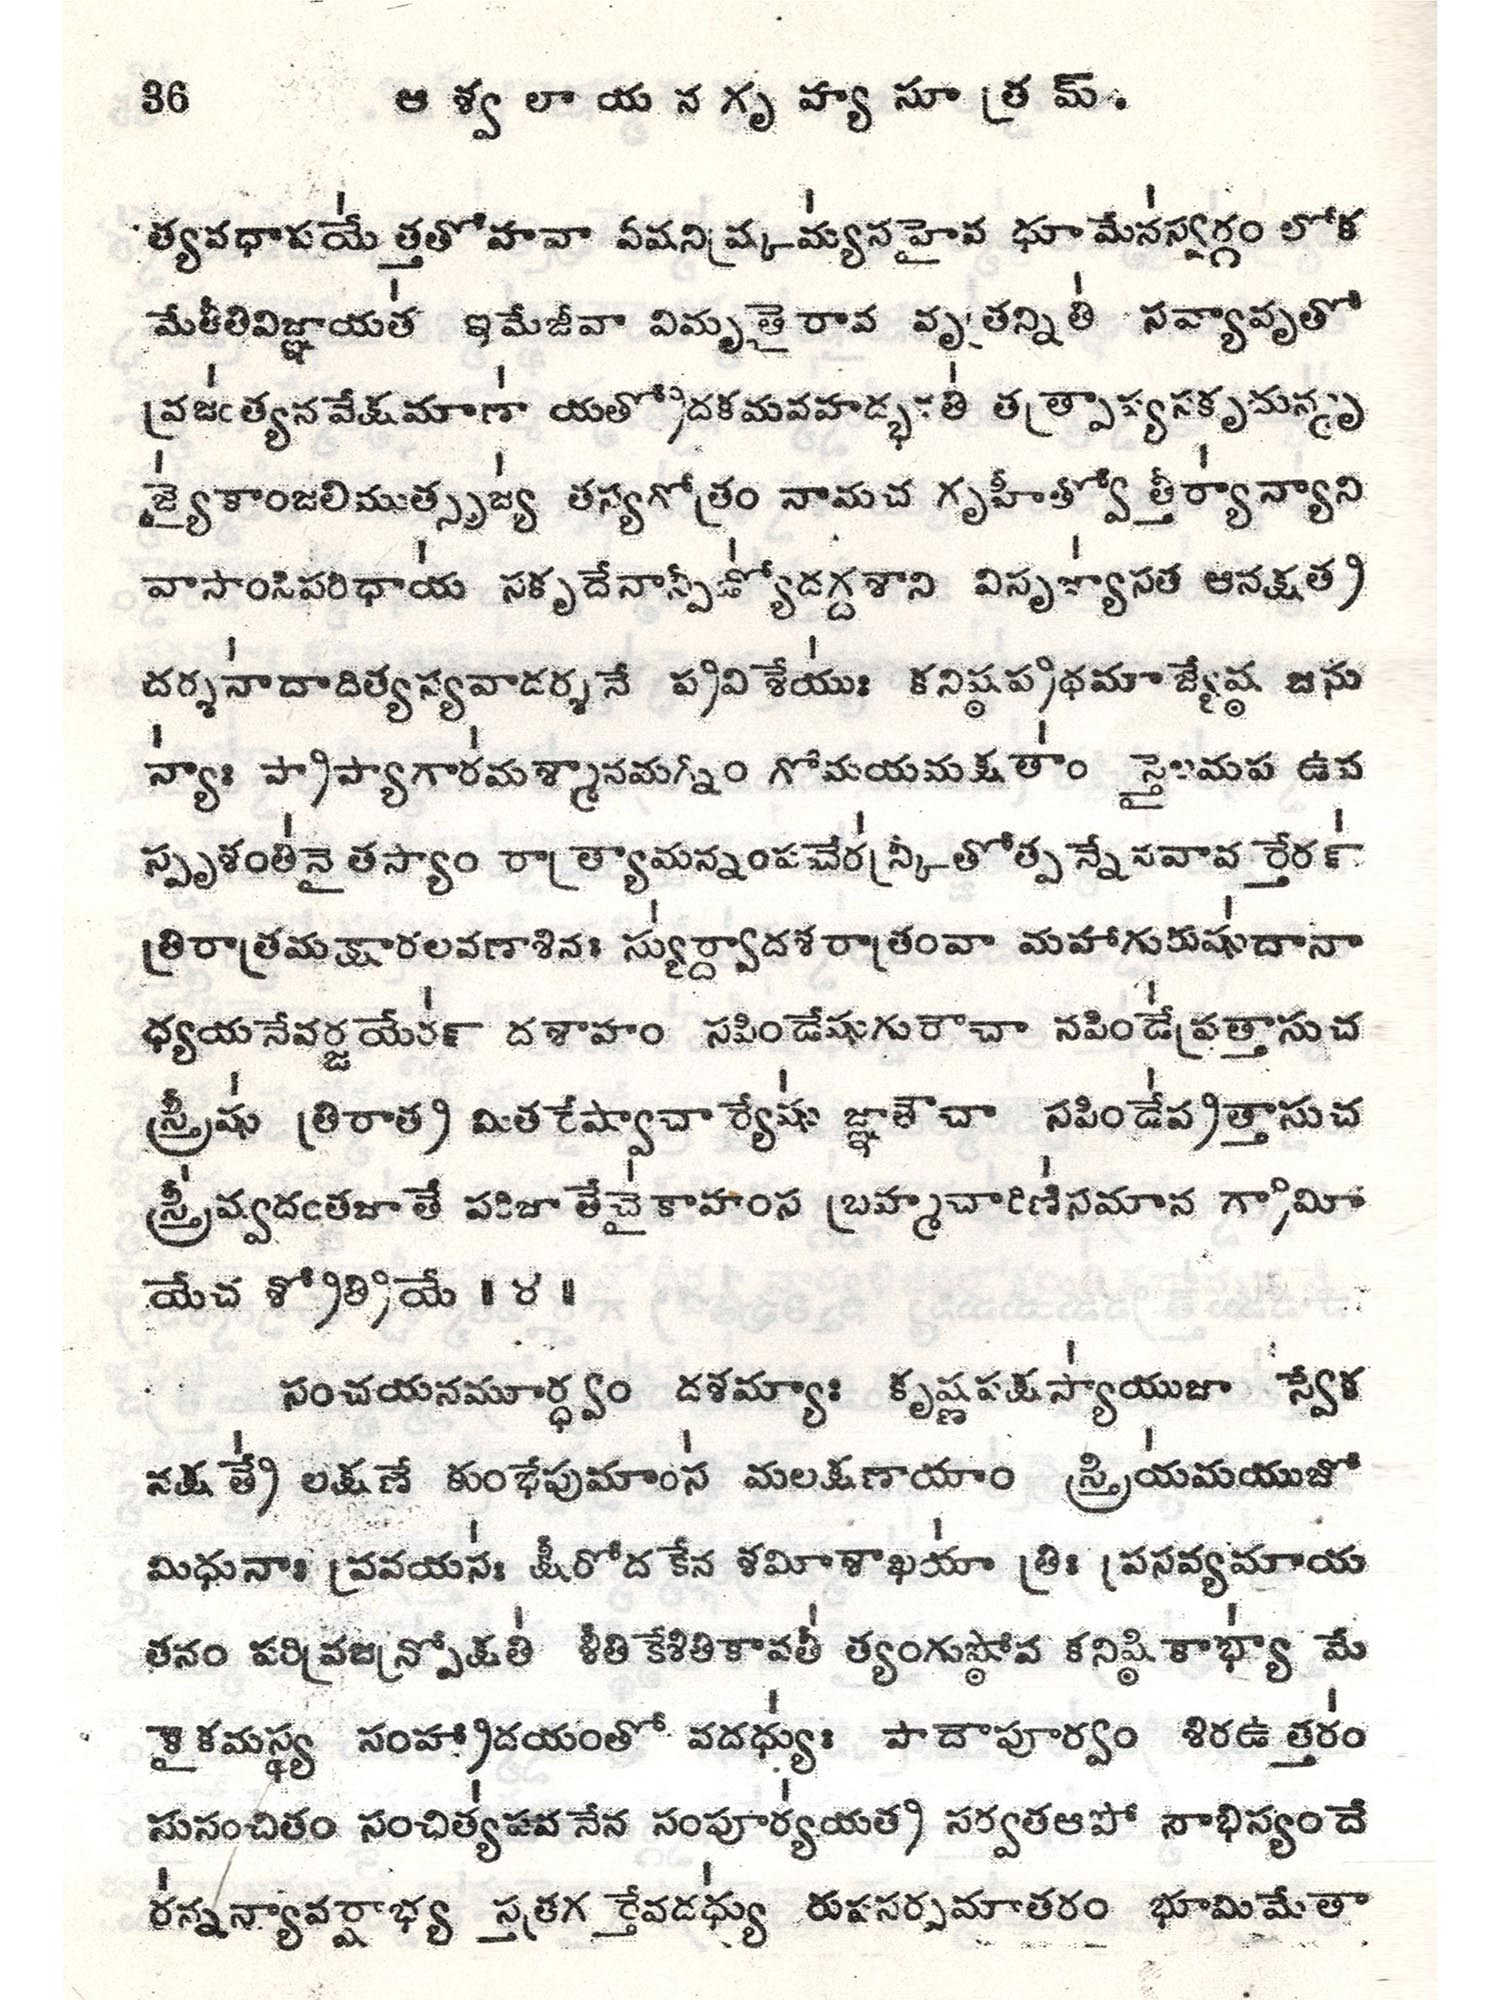 36 ఆశ్వలాయనగృహ్యసూత్రమ్.
త్యవధాపయే॑త్తతోహవా ఏషనిష్క్రమ్య॑సహైవ ధూమేన॑స్వర్గం లోక
మేతీతివిజ్ఞాయత॑ ఇమేజీవా విమృతై రావ వృత్రన్నితి॑ సవ్యావృతో
వ్రజం॑త్యనవేక్షమాణా॑ యత్రోదకమవహద్భవతి॑ తత్ప్రాప్యసకృదున్మృ
జ్యై॑కాంజలిముత్సృజ్య॑ తస్యగోత్రం నామచ గృహీత్వో త్తీర్యా॑న్యాని
వాసాంసిపరిధాయ॑ సకృదేనాన్పీడ్యో॑దగ్దశాని విసృజ్యా॑సత ఆనక్షత్ర
దర్శనా॑దాదిత్యస్యవాదర్శనే ప్రవిశేయుః॑ కనిష్ఠప్రథమాజ్యేష్ఠ జఘ
న్యాః॑ ప్రాప్యాగార॑మశ్మానమగ్నిం గోమయమక్షతాం॑ స్తైలమప ఉప
స్పృశంతి॑నైతస్యాం రాత్ర్యామన్నంపచేర॑న్క్రీతోత్పన్నేనవావ ర్తేరన్॑
త్రిరాత్రమక్షారలవణాశినః స్యు॑ర్ద్వాదశరాత్రంవా మహాగురుషు॑దానా
ధ్యయనేవర్జయేరన్॑ దశాహం సపిండేషుగురౌచా సపిండే॑ప్రత్తాసుచ
స్త్రీషు॑ త్రిరాత్ర మితరేష్వాచార్యేషు॑ జ్ఞాతౌచా సపిండే॑ప్రత్తాసుచ
స్త్రీ॑ష్వదంతజాతే పరిజాతేచై॑కాహంస బ్రహ్మచారిణి॑సమాన గ్రామీ
యేచ శ్రోత్రియే ॥ ౪ ॥
సంచయనమూర్ధ్వం దశమ్యాః కృష్ణపక్షస్యా॑యుజా స్వేక
నక్షత్రే॑ లక్షణే కుంభేపుమాంస॑ మలక్షణాయాం స్త్రియ॑మయుజో
మిధునాః ప్రవయసః॑ క్షీరోదకేన శమీశాఖయా॑ త్రిః ప్రసవ్యమాయ
తనం పరివ్రజన్ప్రోక్షతి॑ శీతికేశీతికావతీ॑ త్యంగుష్ఠోప కనిష్ఠికాభ్యా॑ మే
కైకమస్థ్య సంహ్రాదయంతో వదధ్యుః॑ పాదౌపూర్వం శిరఉత్తరం॑
సుసంచితం సంచిత్య॑పవనేన సంపూర్య॑యత్ర సర్వతఆపో నాభిస్యందే
ర॑న్నన్యావర్షాభ్య స్తత్రగ ర్తేవదధ్యు॑ రుపసర్పమాతరం భూమిమేతా